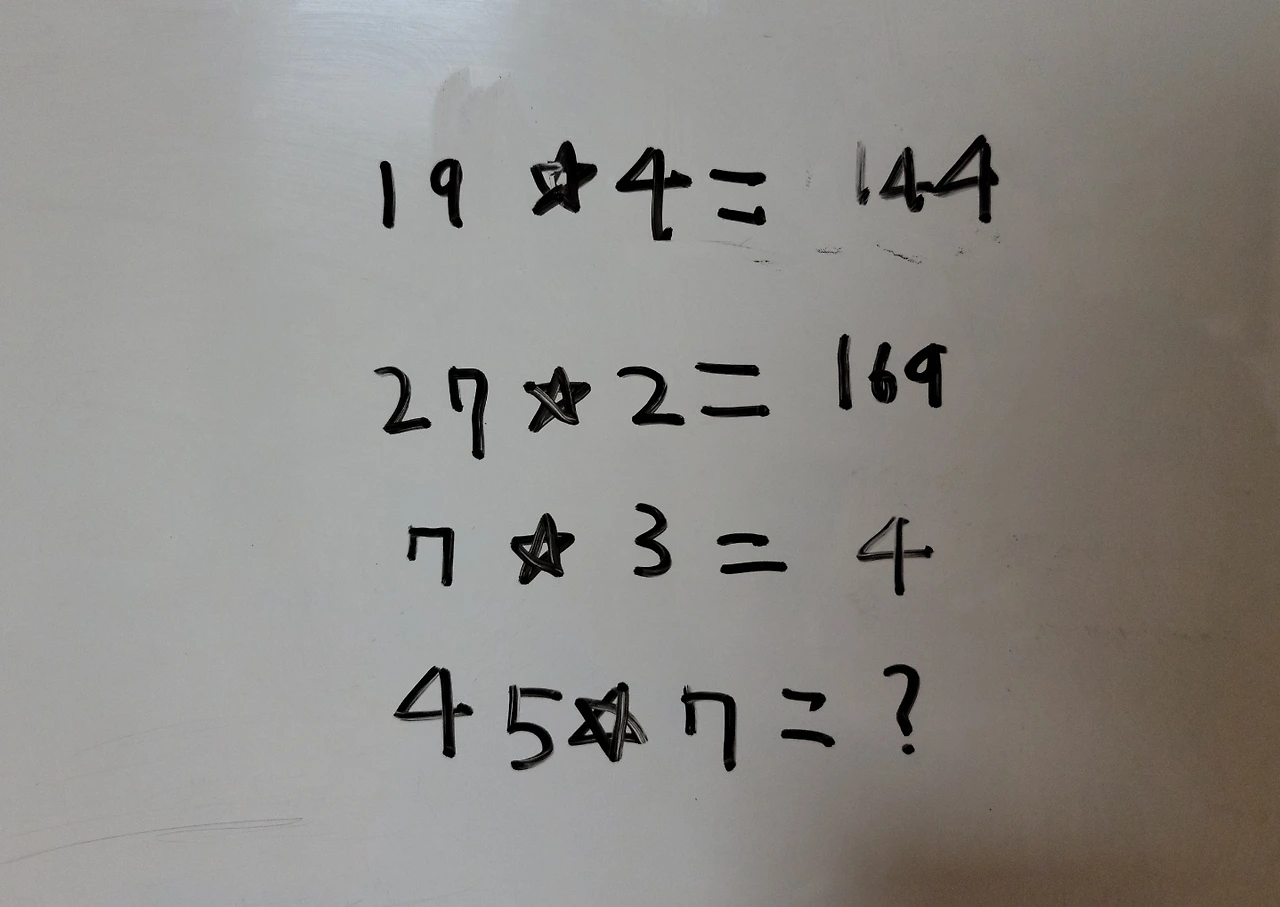 19 ☆ 4 = 144
27 ☆ 2 = 169
7 ☆ 3 = 4
45 ☆ 7 = ?